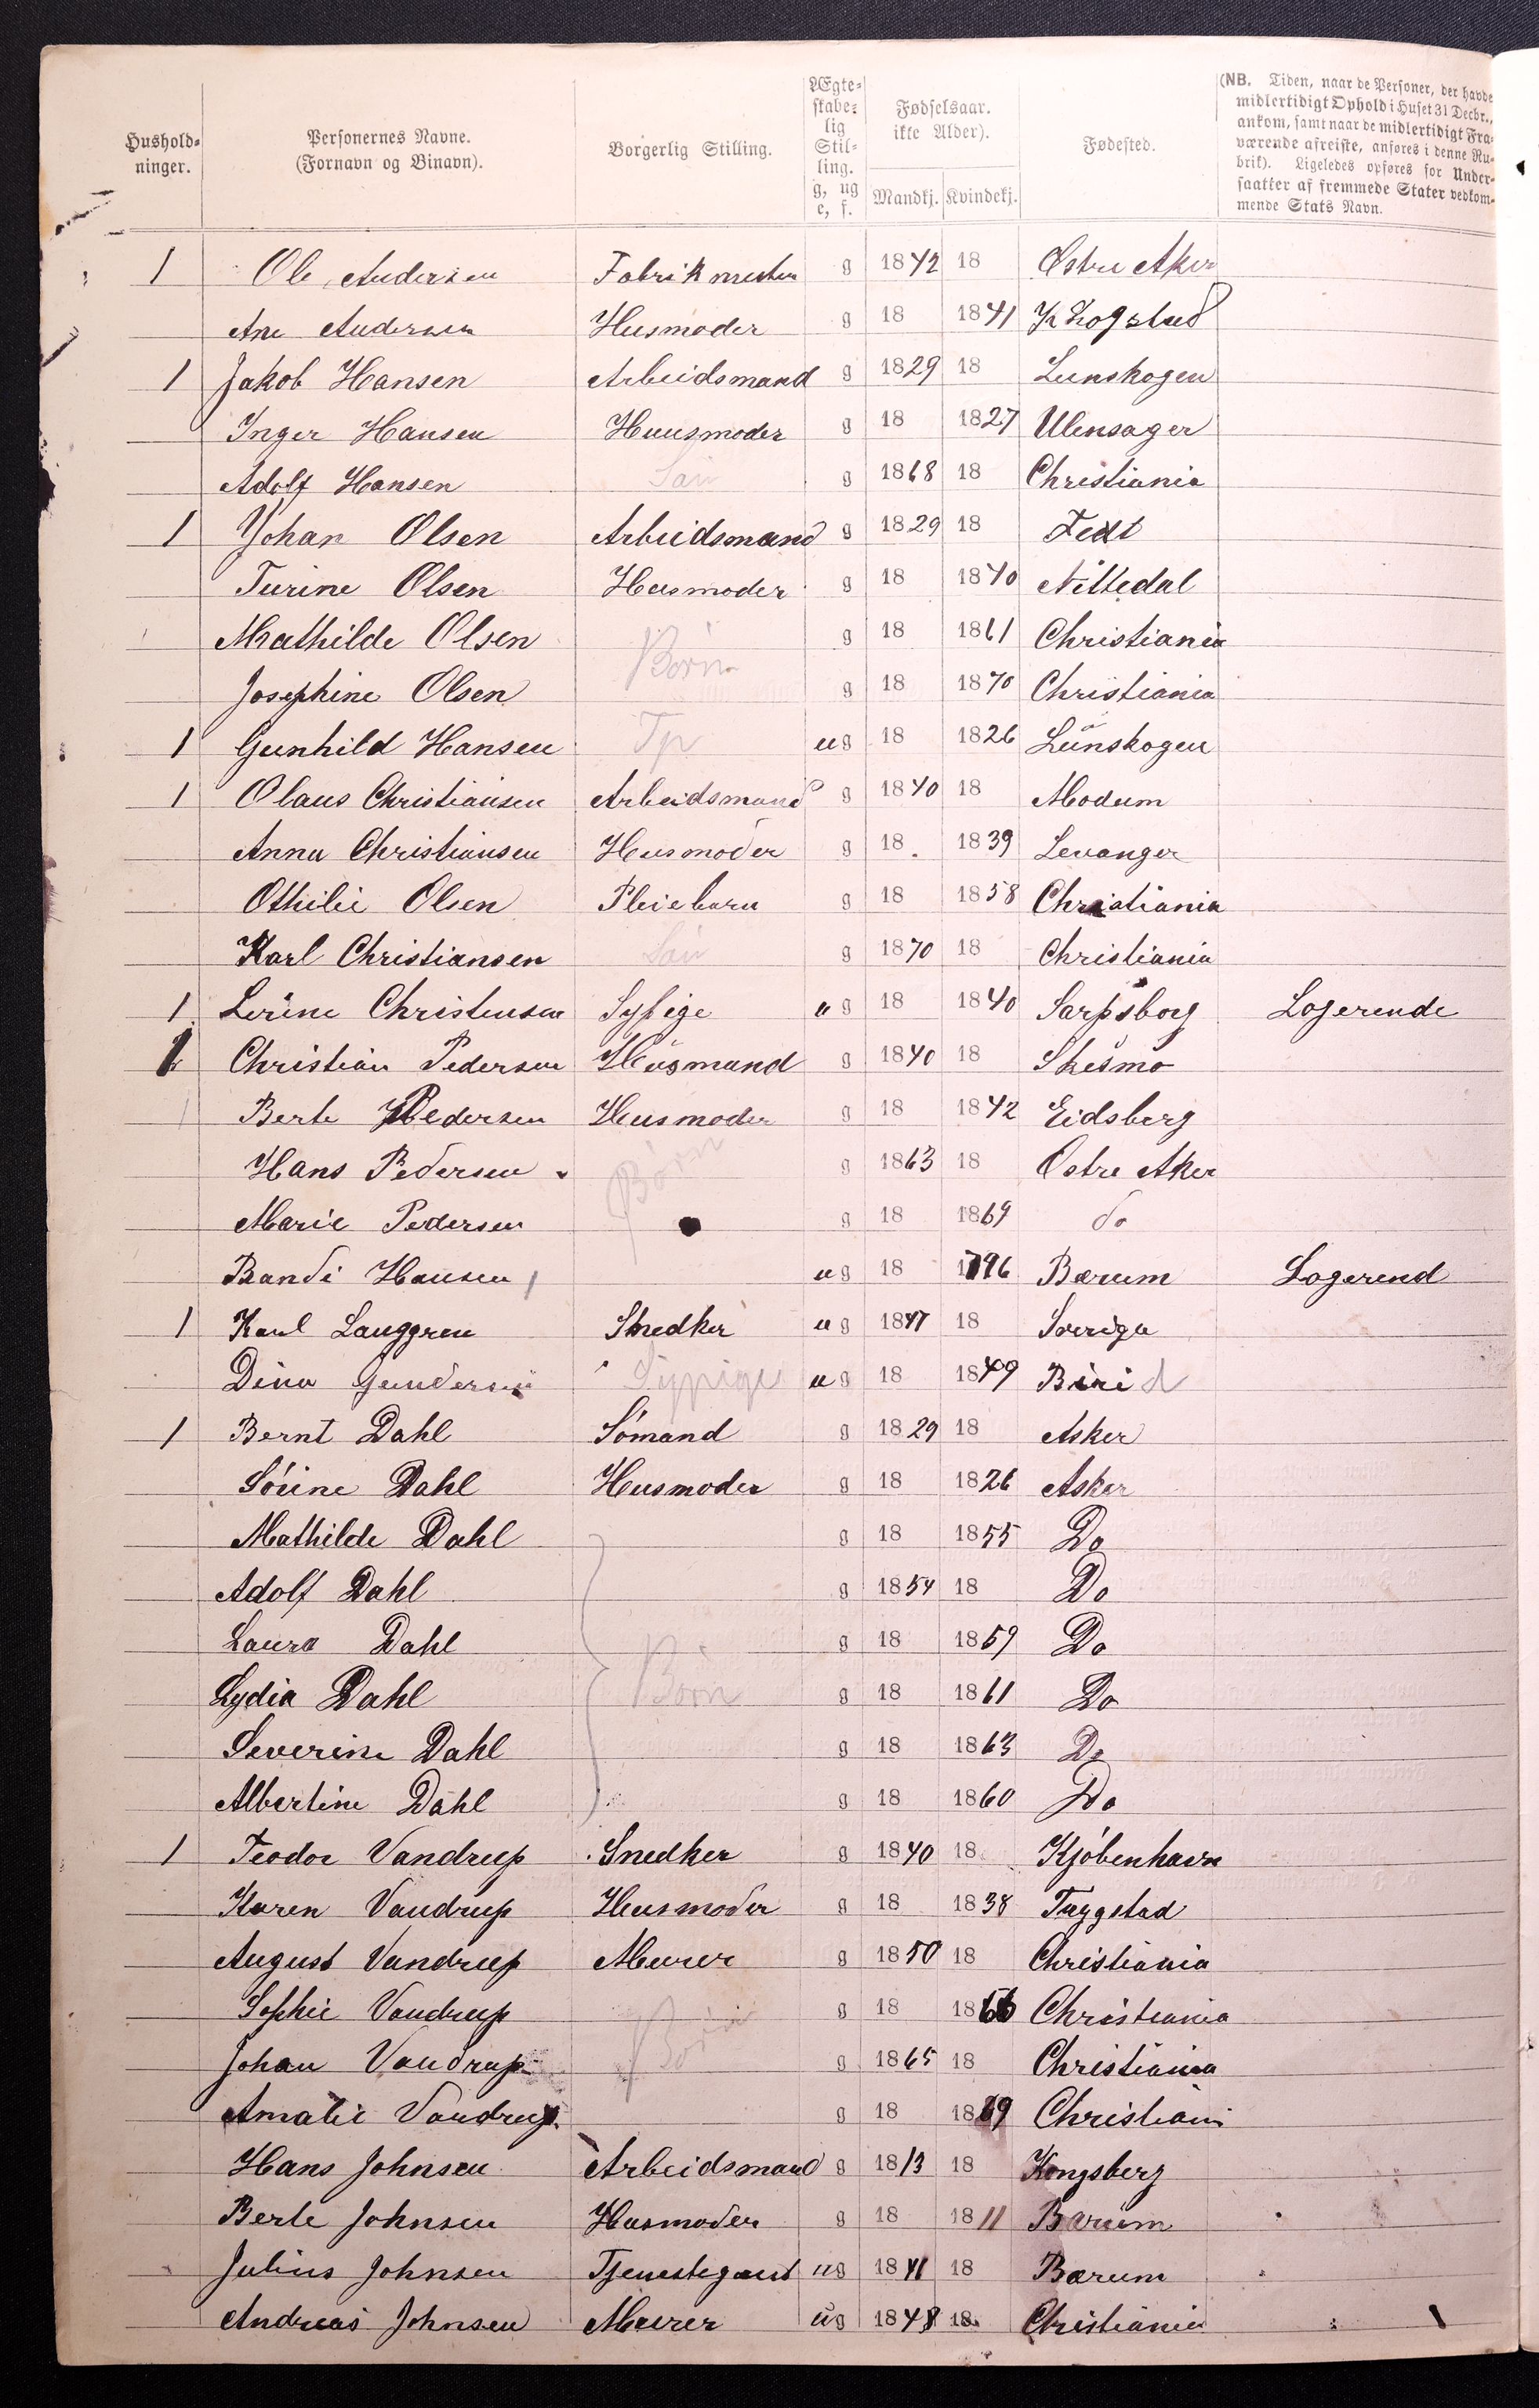 Hushold-ninger. Personernes Navne. (Fornavn og Binavn). Borgerlig Stilling. Ægte-skabe-lig Stil-ling. g, ug e, f. Fødselsaar. ikke Alder). Mandkj. Kvindekj. Fødested. (NB. Tiden, naar de Personer, der havde midlertidigt Ophold i Huset 31 Decbr., ankom, samt naar de midlertidigt Fra-værende afreiste, anføres i denne Ru-brik). Ligeledes opføres for Under-saatter af fremmede Stater vedkom-mende Stats Navn.
1 Ole Andersen Fabrikmester g 1842 18 Østre Aker
Ane Andersen Husmoder g 18 1841
1 Jakob Hansen Arbeidsmand g 1829 18 Lunskogen
Inger Hansen Huusmoder g 18 1827 Ulensager
Adolf Hansen Søn g 1868 18 Christiania
1 Johan Olsen Arbeidsmand g 1829 18 Fedt
Turine Olsen Husmoder g 18 1840 Nittedal
Mathilde Olsen Børn g 18 1861 Christiania
Josephine Olsen g 18 1870 Christiania
1 Gunhild Hansen Tp ug 18 1826 Lünskogen
1 Olaus Christiansen Arbeidsmand g 1840 18 Modum
Anna Christiansen Husmoder g 18 1839 Levanger
Othilie Olsen Pleiebarn g 18 1858 Christiania
Karl Christiansen Søn g 1870 18 Christiania
1 Lerine Christensen Sypige ug 18 1840 Sarpsborg Logerende
1 Christian Pedersen Husmand g 1840 18 Skesmo
Berte Pedersen Husmoder g 18 1842 Eidsberg
Hans Pedersen Børn g 1863 18 Østre Aker
Marie Pedersen g 18 1869 do
Randi Hansen ug 18 1796 Bærum Logerend
1 Karl Langgren Snedker ug 1847 18 Sverige
Dina Gundersen Sypige ug 18 1849 Birid
1 Bernt Dahl Sömand g 1829 18 Asker
Sörine Dahl Husmoder g 18 1826 Asker
Mathilde Dahl g 18 1855 Do
Adolf Dahl g 1854 18 Do
Laura Dahl g 18 1859 Do
Lydia Dahl Børn g 18 1861 Do
Severine Dahl g 18 1863 Do
Albertine Dahl g 18 1860 Do
1 Teodor Vandrup Snedker g 1840 18 Kjöbenhavn
Karen Vandrup Husmoder g 18 1838 Tryggstad
August Vandrup Murer g 1850 18 Christiania
Sophie Vandrup Børn g 18 1866 Christiania
Johan Vandrup g 1865 18 Christiania
Amalie Vandrup g 18 1869 Christiani
Hans Johnsen Arbeidsmand g 1813 18 Kongsberg
Berte Johnsen Husmoder g 18 1811 Bærum
Julius Johnsen Tjenestegout ug 1841 18 Bærum
Andreas Johnsen Murer ug 1848 18 Christiania